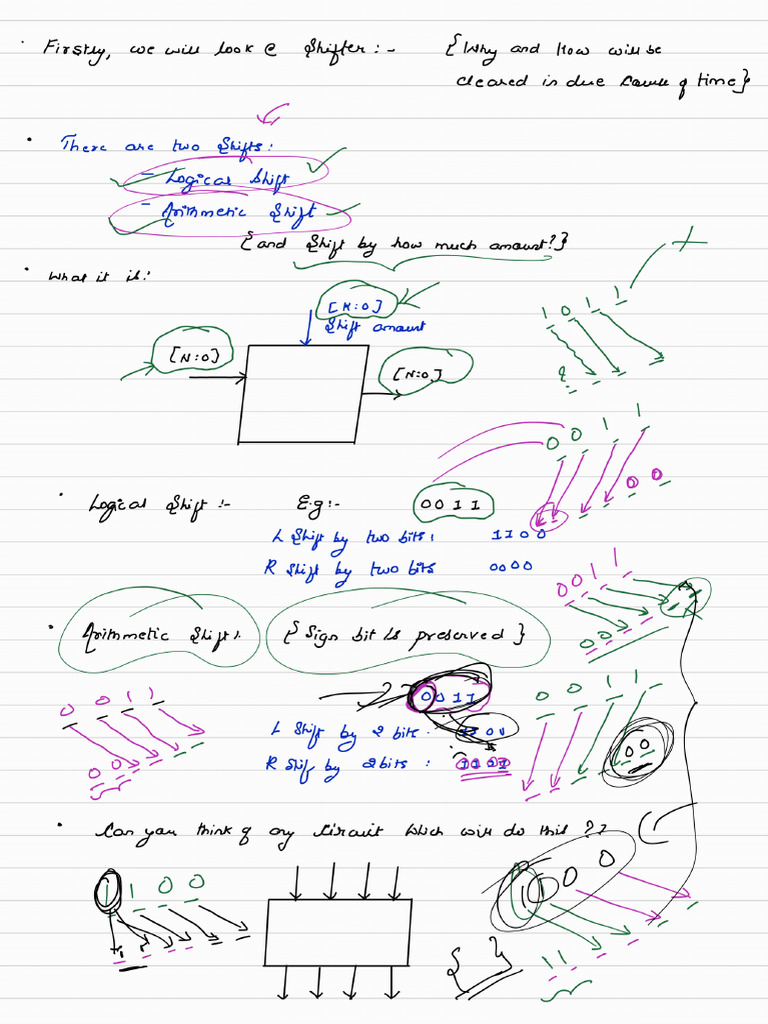 Firstly, we will look @ Shifter:- {Why and How will be
cleared in due course of time}
There are two Shifts:
- Logical Shift
- Arithmetic Shift
{and Shift by how much amount?}
What it is:
[K:0]
Shift amount
[N:0]
[N:0]
1 0 1 1
0 0 1 1
0 0
Logical Shift :- E.g:- 0011
L Shift by two bits: 1100
R Shift by two bits 0000
0 0 1 1
0 0
Arithmetic Shift: {Sign bit is preserved}
0011
L Shift by 2 bits:
R Shif by 2bits :
0 0 1 1
0 0
0 0 1 1
0 0
Can you think of any Circuit which will do this??
1 1 0 0
1 1 0 0
1 1
{ }